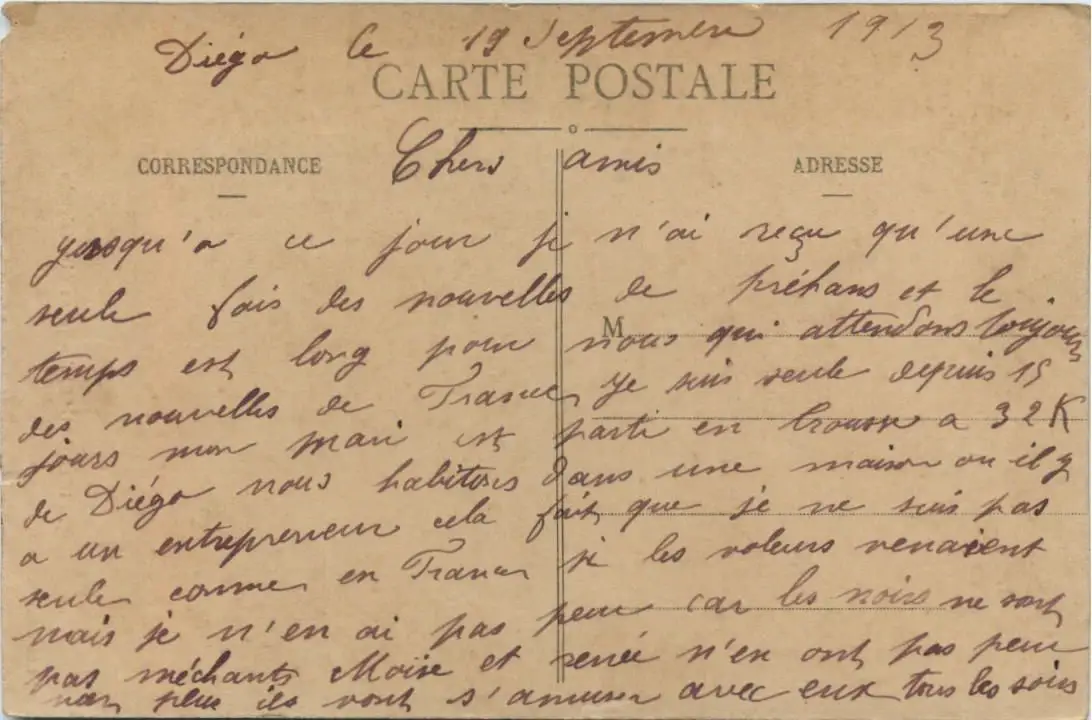 Diégo le 19 Septembre 1913
CARTE POSTALE
CORRESPONDANCE
ADRESSE
Chers amis
jusqu'a ce jour je n'ai reçu qu'une
seule fois des nouvelles de préhans et le
M
temps est long pour nous qui attendons toujours
des nouvelles de France Je suis seule depuis 15
jours mon mari est parti en brousse a 32 K
de Diégo nous habitons dans une maison ou il y
a un entrepreneur cela fait que je ne suis pas
seule comme en France si les voleurs venaient
mais je n'en ai pas peur car les noirs ne sont
pas méchants Moise et renée n'en ont pas peur
non plus ils vont s'amuser avec eux tous les soirs